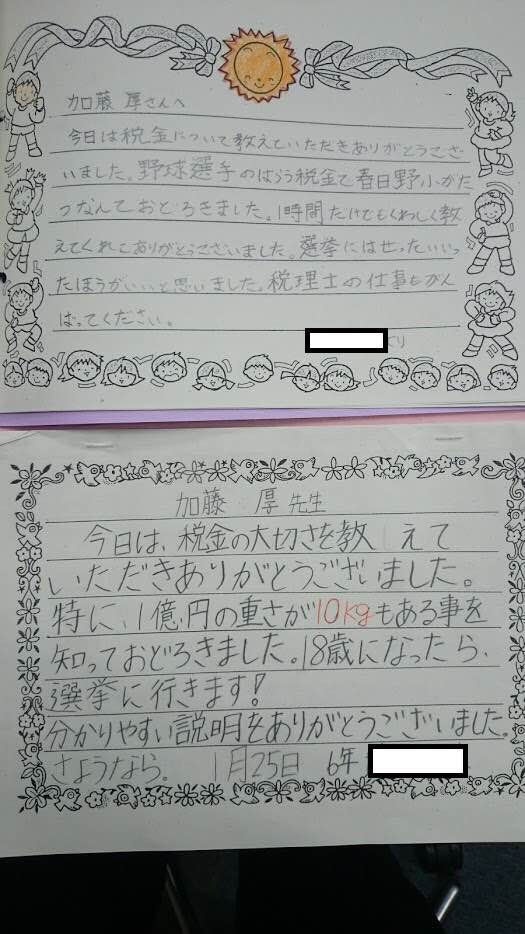 加藤 厚さんへ
今日は税金について教えていただきありがとうござ
いました。野球選手のはらう税金で春日野小がた
つなんておどろきました。1時間だけでもくわしく教
えてくれてありがとうございました。選挙にはぜったいいっ
たほうがいいと思いました。税理士の仕事もがん
ばってください。
より
加藤 厚 先生
今日は、税金の大切さを教えて
いただきありがとうございました。
特に、1億円の重さが10kgもある事を
知っておどろきました。18歳になったら、
選挙に行きます!
分かりやすい説明をありがとうございました。
さようなら。 1月25日 6年